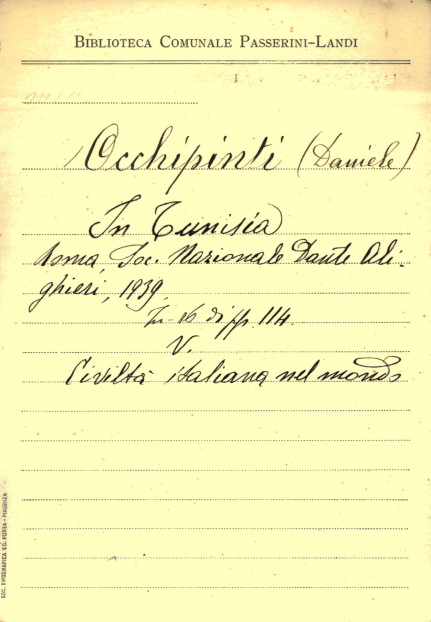 BIBLIOTECA COMUNALE PASSERINI-LANDI
Occhipinti (Daniele)
In Tunisia
Roma, Soc. Nazionale Dante Ali-
ghieri, 1939
In-16 di pp. 114.
V.
Civiltà italiana nel mondo
SOC. TIPOGRAFICA ED. PORTA - PIACENZA